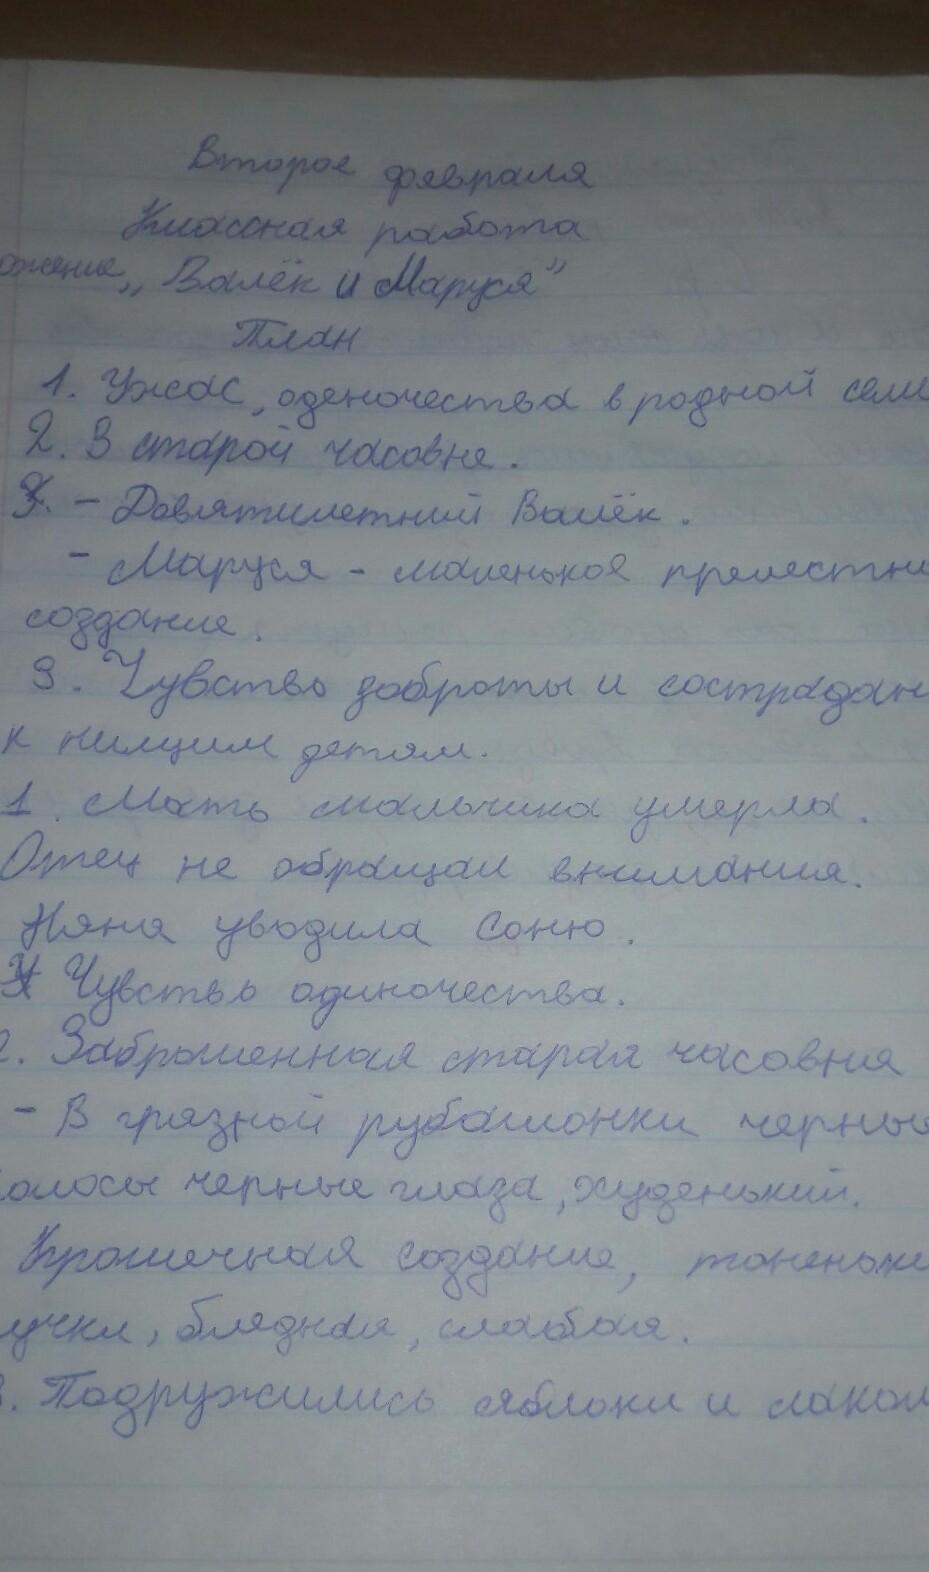 Второе февраля
Классная работа
ожение „Валёк и Маруся”
План
1. Ужас, оденочества в родной семь
2. В старой часовне.
- Девятилетний Валёк.
- Маруся - маленькое прелестно
создание.
3. Чувство доброты и сострадан
к нищим детям.
1. Мать мальчика умерла.
Отец не обращал внимания.
Няня уводила Соню.
Чувство одиночества.
2. Заброшенная старая часовня
- В грязной рубашонки черные
олосы черные глаза, худенький.
Крошечная создание, тоненьки
учки, бледная, слабая.
3. Подружились яблоки и лаком